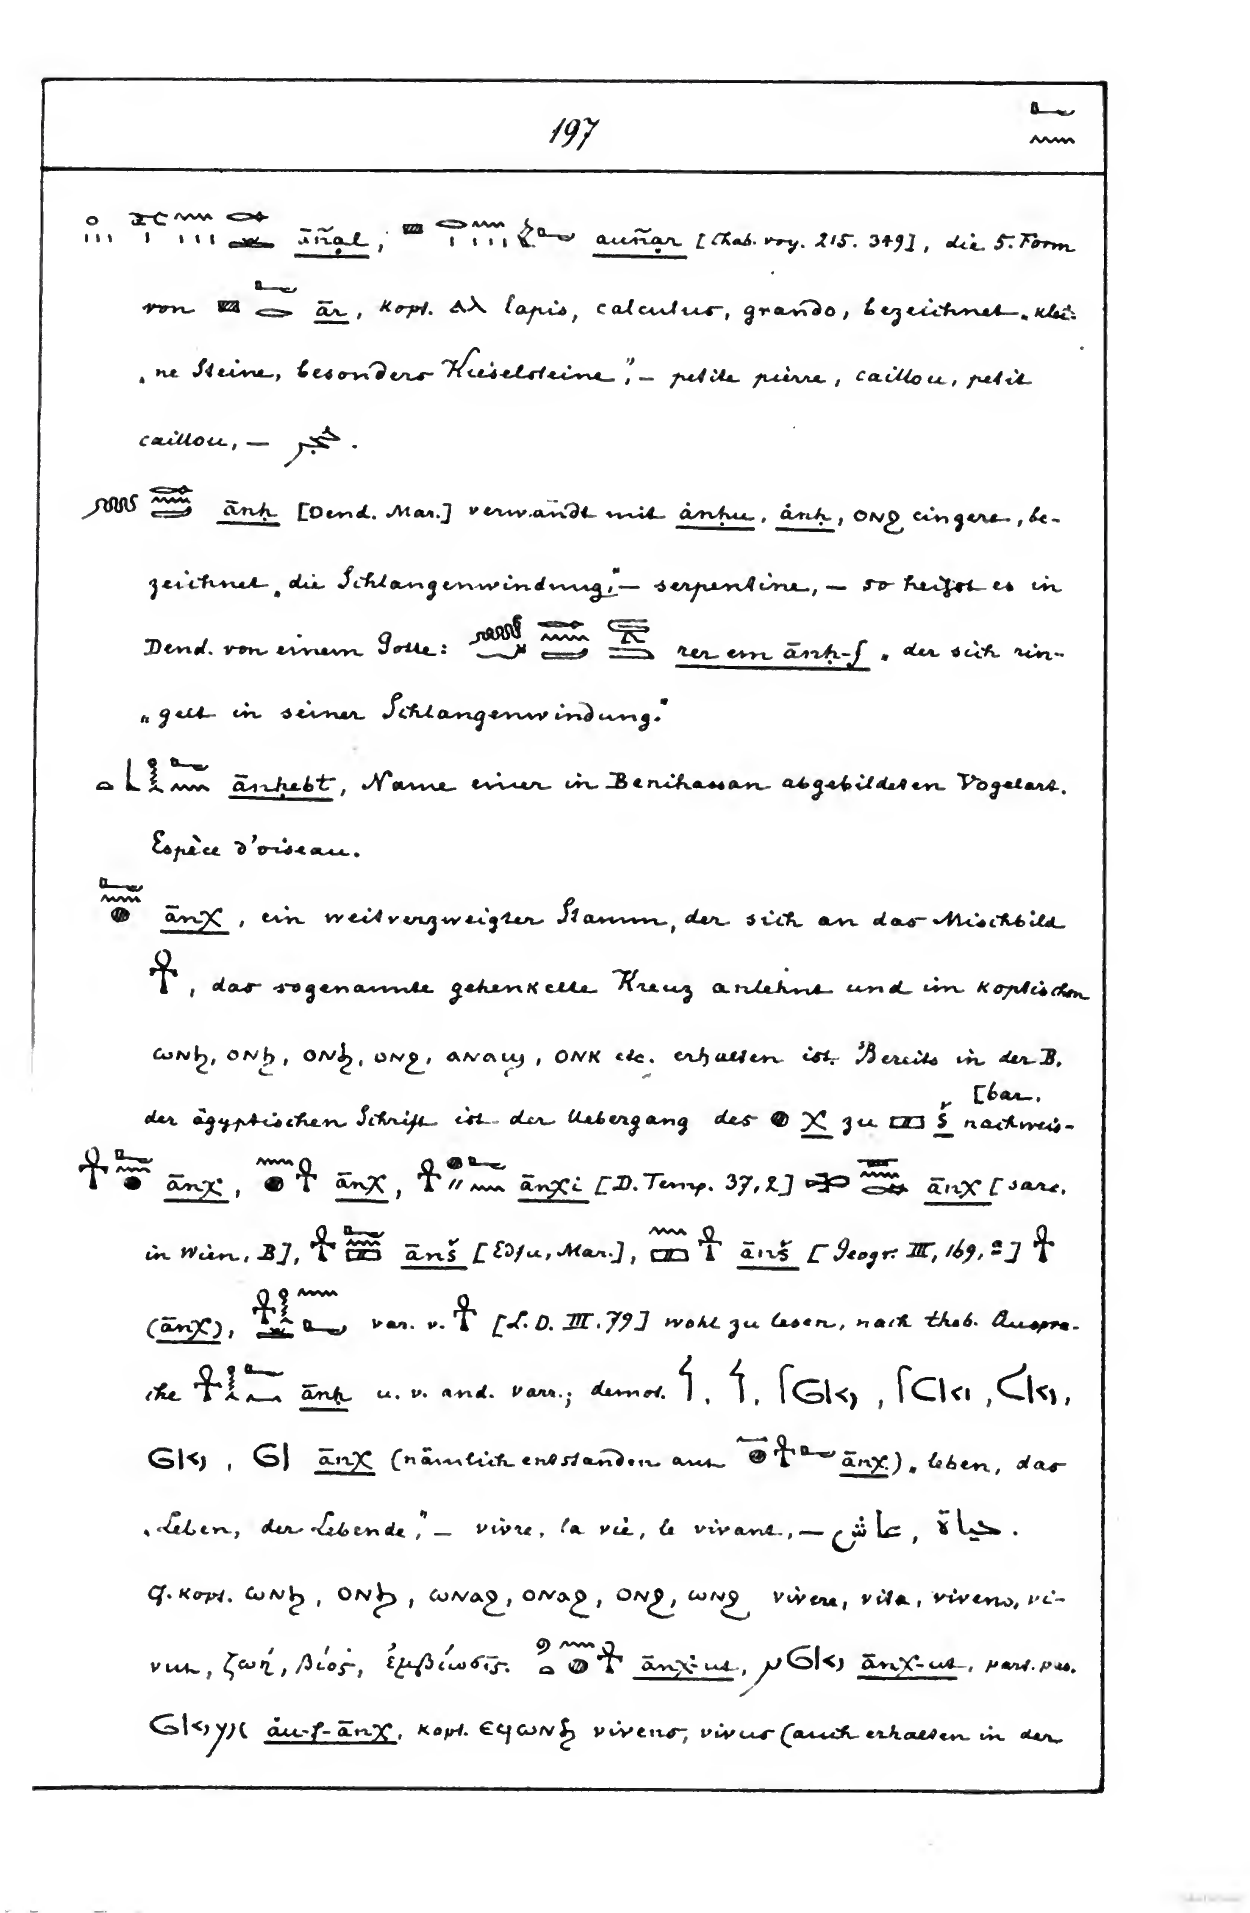 197
āñạl, auñạr [Chab. voy. 215. 349], die 5. Form
von ār, kopt. ⲁⲗ lapis, calculus, grando, bezeichnet „klei-
„ne Steine, besonders Kieselsteine", – petite pierre, caillou, petit
caillou, –
ānḥ [Dend. Mar.] verwandt mit ȧnḥu, ȧnḥ, ⲟⲛϩ cingere, be-
zeichnet „die Schlangenwindung", – serpentine, – so heißt es in
Dend. von einem Gotte: rer em ānḥ-f „der sich rin-
„gelt in seiner Schlangenwindung."
ānḥebt, Name einer in Benihassan abgebildeten Vogelart.
Espèce d'oiseau.
𓂝𓈖𓐍 ānχ, ein weitverzweigter Stamm, der sich an das Mischbild
𓋹, das sogenannte gehenkelte Kreuz anlehnt und im koptischen
ⲱⲛϧ, ⲟⲛϧ, ⲟⲛϧ, ⲟⲛϩ, ⲁⲛⲁϣ, ⲟⲛⲕ etc. erhalten ist. Bereits in der B.
der ägyptischen Schrift ist der Uebergang des 𓐍 χ zu 𓈙 š nachweis-
[bar.
𓋹𓂝𓈖𓐍 ānχ, 𓈖𓐍𓋹 ānχ, 𓋹 ānχi [D. Temp. 37,2] ānχ [sarc.
in Wien, B], 𓋹𓂝𓈖𓈙 ānš [Edfu, Mar.], 𓈖𓈙𓋹 ānš [Geogr. III, 169, a] 𓋹
(ānχ), var. v. 𓋹 [L. D. III. 79] wohl zu lesen, nach theb. Ausspra-
che ānḥ u. v. and. varr.; demot.
ānχ (nämlich entstanden aus 𓈖𓐍𓋹𓂝 ānχ) „leben, das
„Leben, der Lebende", – vivre, la vie, le vivant, – عاش, حياة.
Cf. kopt. ⲱⲛϧ, ⲟⲛϧ, ⲱⲛⲁϩ, ⲟⲛⲁϩ, ⲟⲛϩ, ⲱⲛϩ vivere, vita, vivens, vi-
vus, ζωή, βίος, ἐμβίωσις. ānχ-ut, ānχ-ut, part. pas.
ȧu-f-ānχ, kopt. ⲉϥⲱⲛϧ vivens, vivus (auch erhalten in der